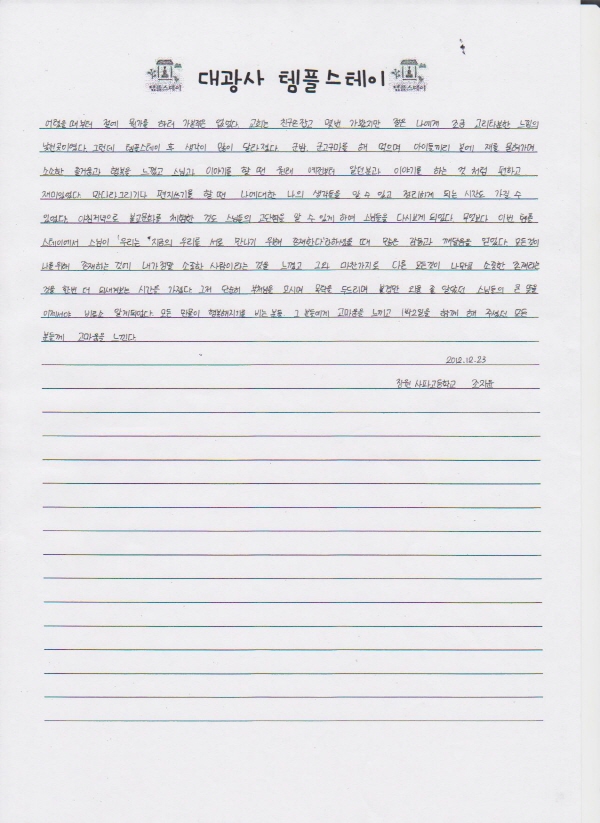 템플스테이 대광사 템플스테이 템플스테이
어렸을 때부터 절에 뭔가를 하러 가본적은 없었다. 교회는 친구따라 몇번 가봤지만 절은 나에게 조금 고리타분한 느낌의
그런데 템플스테이 후 생각이 많이 달라졌다. 군밤, 군고구마를 해 먹으며 아이들끼리 볼에 재를 묻혀가며
소소한 즐거움과 행복을 느꼈고 스님과 이야기를 할 땐 원래 예전부터 알던분과 이야기를 하는 것 처럼 편하고
재미있었다. 만다라그리기나 편지쓰기를 할 때 나에대한 나의 생각들을 알 수 있고 정리하게 되는 시간도 가질 수
있었다. 아침저녁으로 불교문화를 체험한 것도 스님들의 고단함을 알 수 있게 하여 스님들을 다시보게 되었다. 무엇보다 이번 템플
스테이에서 스님이 '우리는 지금의 우리를 서로 만나기 위해 존재한다'라하셨을 때 많은 감동과 깨달음을 얻었다. 모든것이
나를위해 존재하는 것이 내가정말 소중한 사람이라는 것을 느꼈고 그와 마찬가지로 다른 모든것이 나만큼 소중한 존재라는
것을 한번 더 되새겨보는 시간을 가졌다. 그저 단순히 부처님을 모시며 목탁을 두드리며 불경만 외울 줄 알았던 스님들의 큰 뜻을
이제서야 비로소 알게되었다. 모든 만물이 행복해지기를 비는분들 그 분들에게 고마움을 느끼고 1박2일을 함께 해 주셨던 모든
분들께 고마움을 느낀다.
2012.12.23
창원 사파고등학교